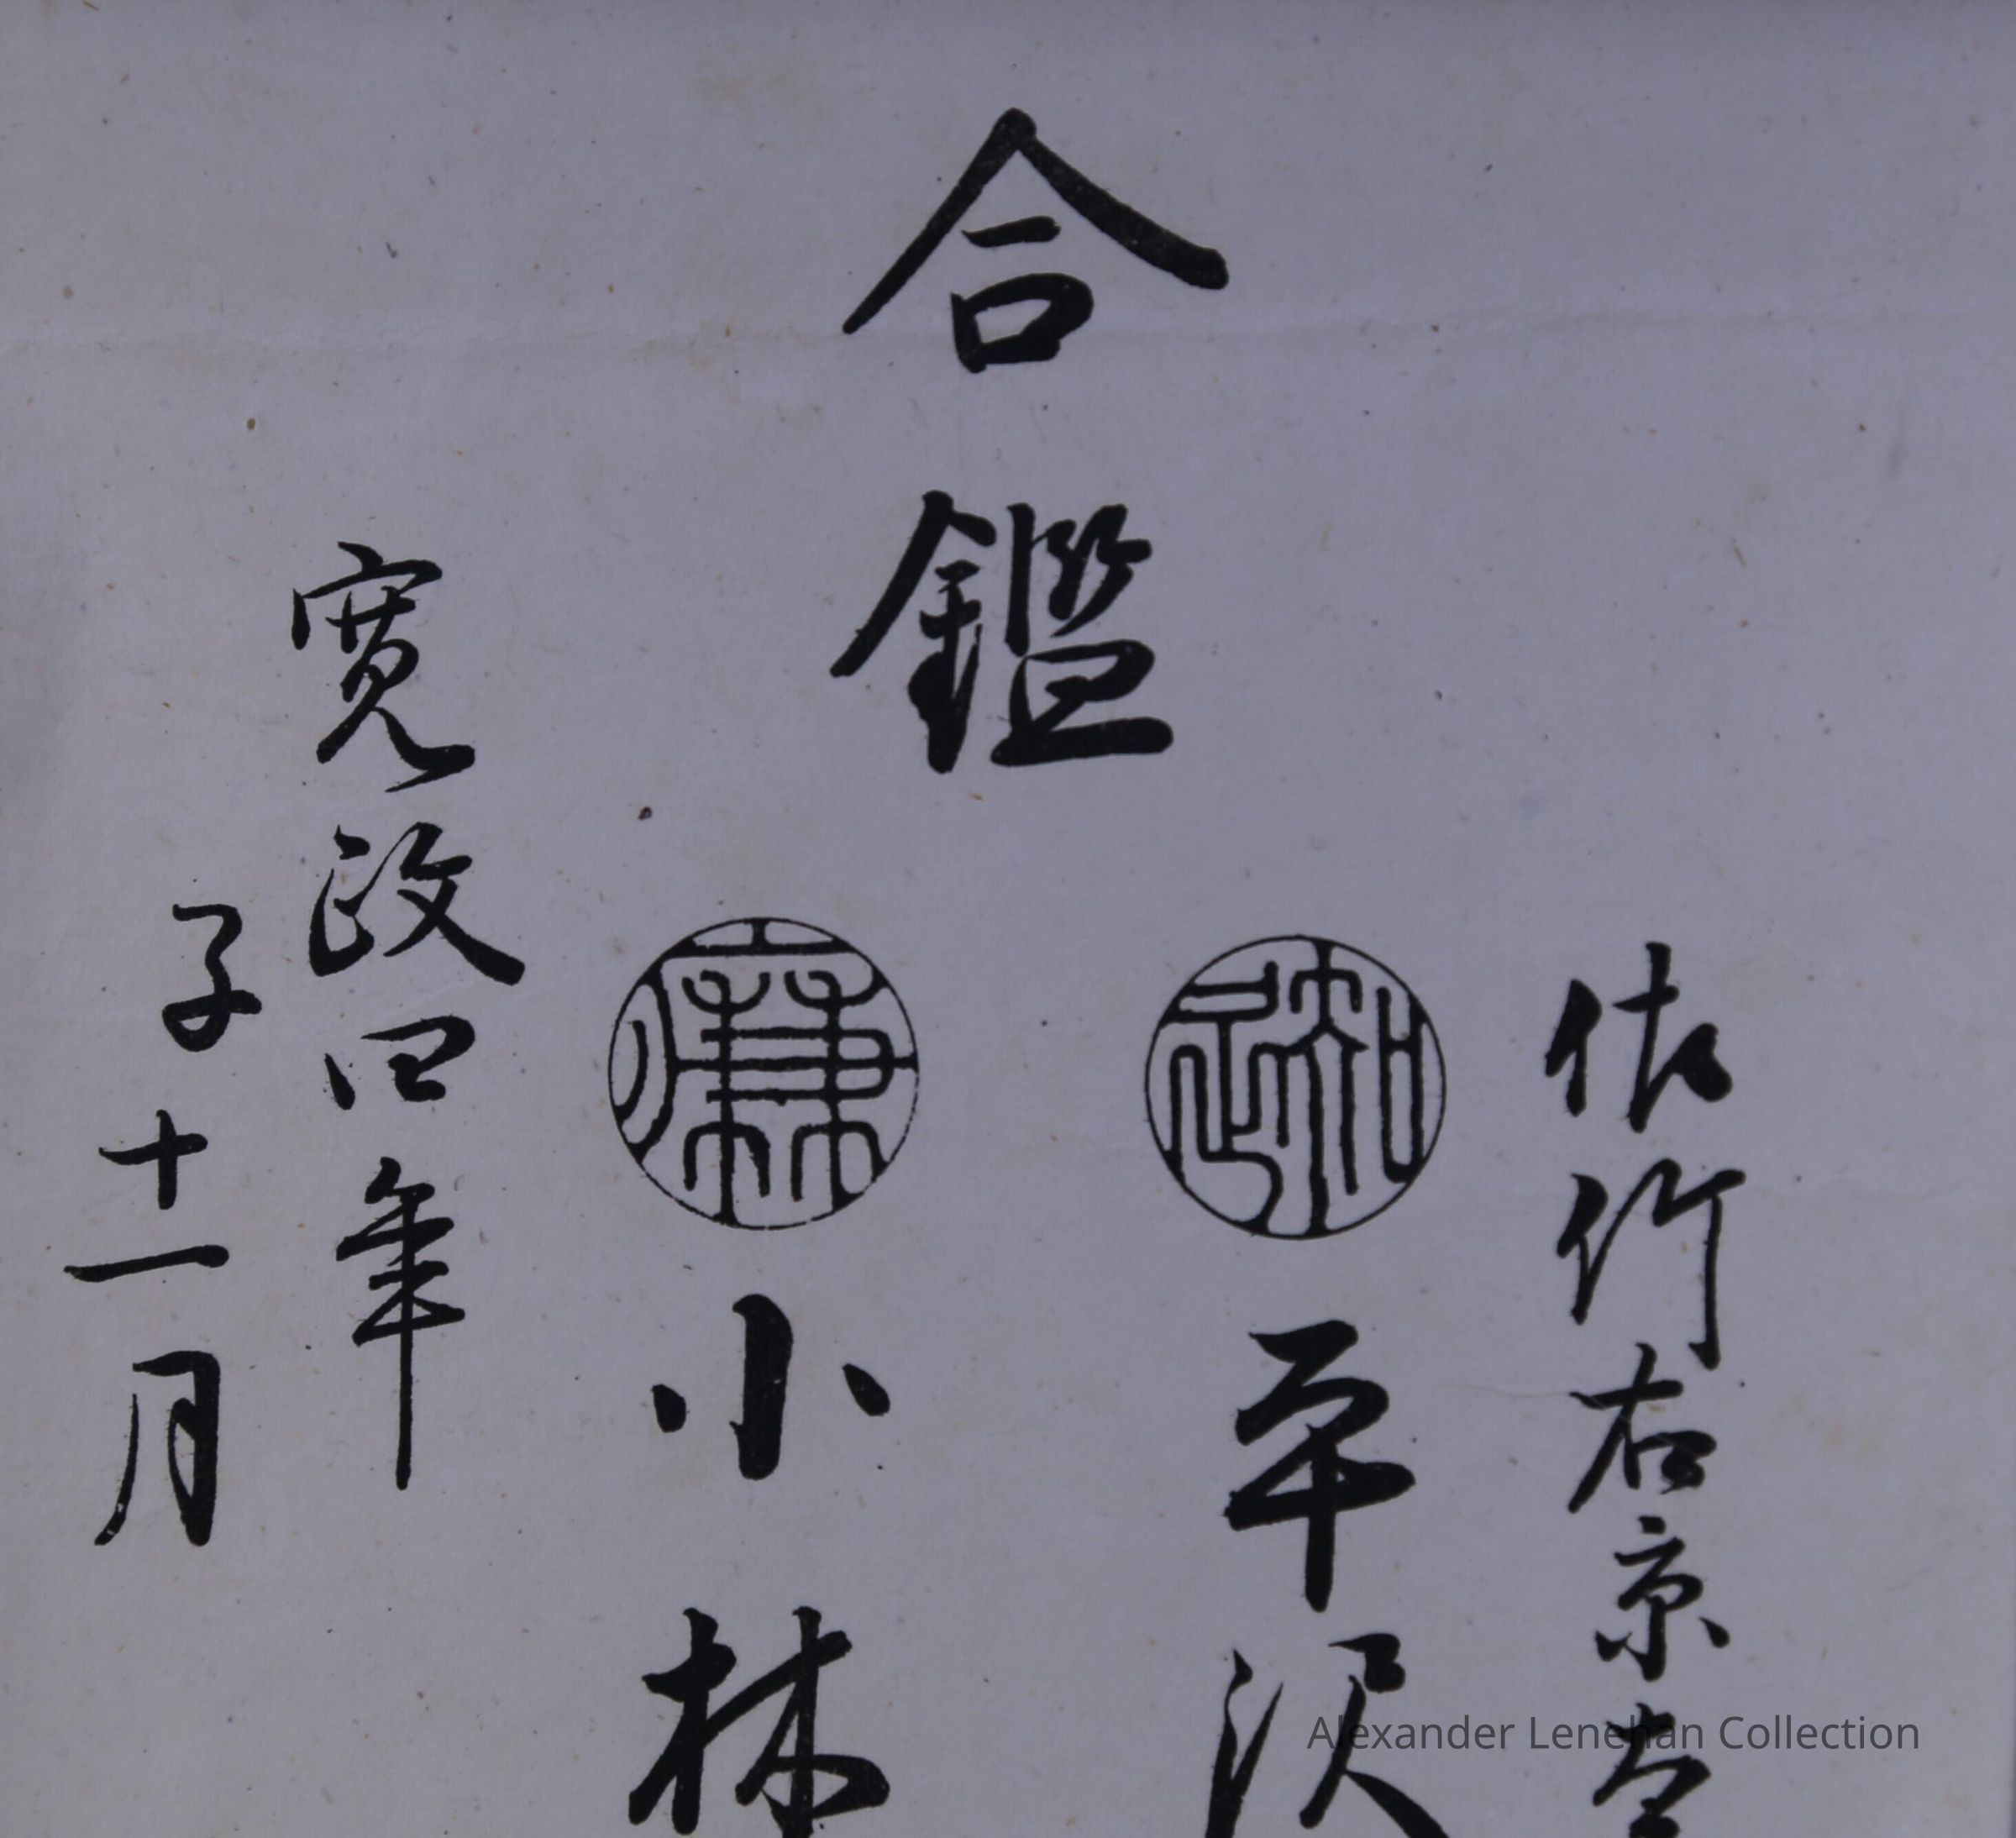 合鑑
佐竹右京大
平沢
小林
寛政四年
子十一月
Alexander Lenehan Collection